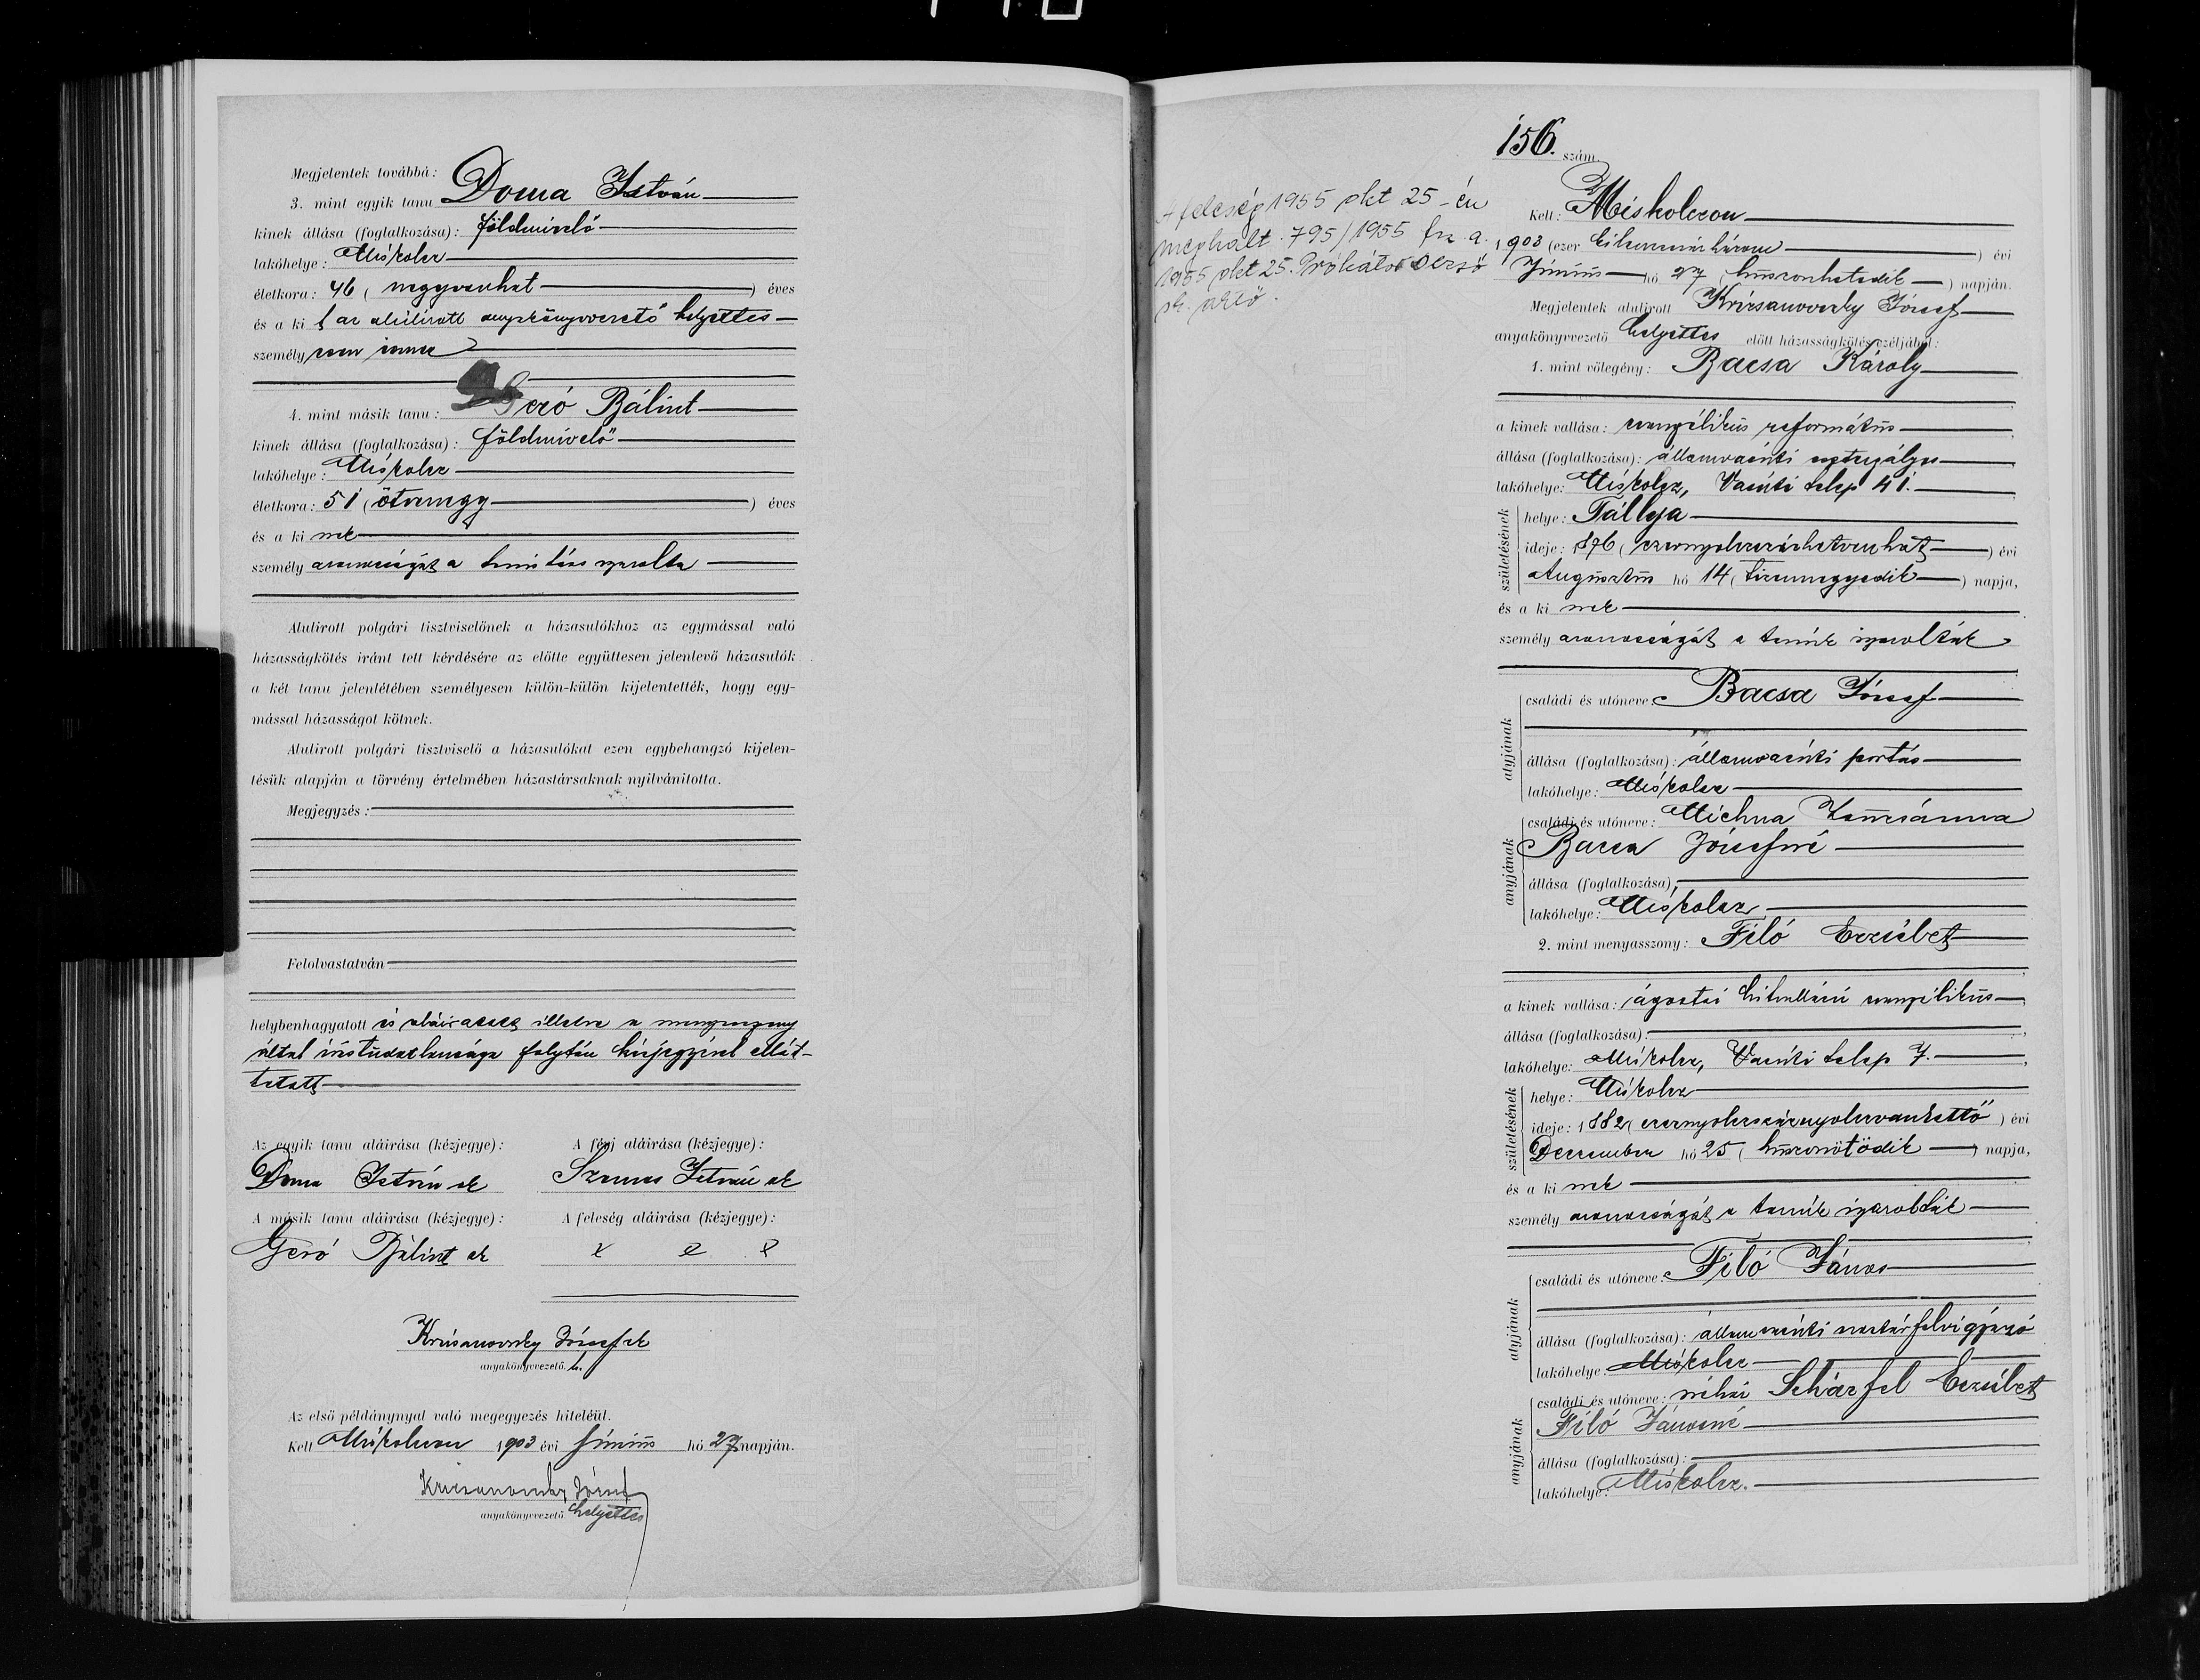 Megjelentek továbbá:
3. mint egyik tanu Doma István
kinek állása (foglalkozása): földmivelő
lakóhelye: Miskolcz
életkora: 46 (negyvenhat) éves
és a ki t az alulirott anyakönyvvezető helyettes
személyesen ismer
4. mint másik tanu: Geró Bálint
kinek állása (foglalkozása): földmivelő
lakóhelye: Miskolcz
életkora: 51 (ötvenegy) éves
és a ki nek
személy azonosságát a tanú
Alulirott polgári tisztviselőnek a házasulókhoz az egymással való
házasságkötés iránt tett kérdésére az előtte együttesen jelenlevő házasulók
a két tanu jelenlétében személyesen külön-külön kijelentették, hogy egy-
mással házasságot kötnek.
Alulirott polgári tisztviselő a házasulókat ezen egybehangzó kijelen-
tésük alapján a törvény értelmében házastársaknak nyilvánitotta.
Megjegyzés:
Felolvastatván
helybenhagyatott és aláiratott illetve a menyasszony
által irástudatlansága folytán kézjegyével ellát-
tatott
Az egyik tanu aláirása (kézjegye): A férj aláirása (kézjegye):
Doma István sk István sk
A másik tanu aláirása (kézjegye): A feleség aláirása (kézjegye):
Geró Bálint sk
Kricsanovszky József sk
anyakönyvvezető h.
Az első példánynyal való megegyezés hiteléül.
Kelt Miskolczon 1903 évi június hó 27 napján.
Kricsanovszky József
anyakönyvvezető helyettes
A feleség 1955 okt 25-én
meghalt. 795/1955 fsz. a.
1955 okt 25. Prókátor Dezső
156. szám.
Kelt: Miskolczon
1903 (ezer kilenczszázhárom) évi
Június hó 27 (huszonhetedik) napján.
Megjelentek alulirott Kricsanovszky József
anyakönyvvezető helyettes előtt házasságkötés czéljából:
1. mint vőlegény: Bacsa Károly
a kinek vallása: evangélikus református
állása (foglalkozása): államvasúti
lakóhelye: Miskolcz, Vasúti telep 41.
születésének
helye: Tállya
ideje: 1876 (ezernyolczszázhetvenhat) évi
Augusztus hó 14 (tizennegyedik) napja,
és a ki nek
személy azonosságát a tanúk igazolták
atyjának
családi és utóneve: Bacsa József
állása (foglalkozása): államvasúti portás
lakóhelye: Miskolcz
anyjának
családi és utóneve: Michna Zsuzsánna
Bacsa Józsefné
állása (foglalkozása):
lakóhelye: Miskolcz
2. mint menyasszony: Filó Erzsébet
a kinek vallása: ágostai hitvallású evangélikus
állása (foglalkozása):
lakóhelye: Miskolcz, Vasúti telep 7.
születésének
helye: Miskolcz
ideje: 1882 (ezernyolczszáznyolczvankettő) évi
Deczember hó 25 (huszonötödik) napja,
és a ki nek
személy azonosságát a tanúk igazolták
atyjának
családi és utóneve: Filó János
állása (foglalkozása): államvasúti raktárfelvigyázó
lakóhelye: Miskolcz
anyjának
családi és utóneve: néhai Schärfel Erzsébet
Filó Jánosné
állása (foglalkozása):
lakóhelye: Miskolcz.